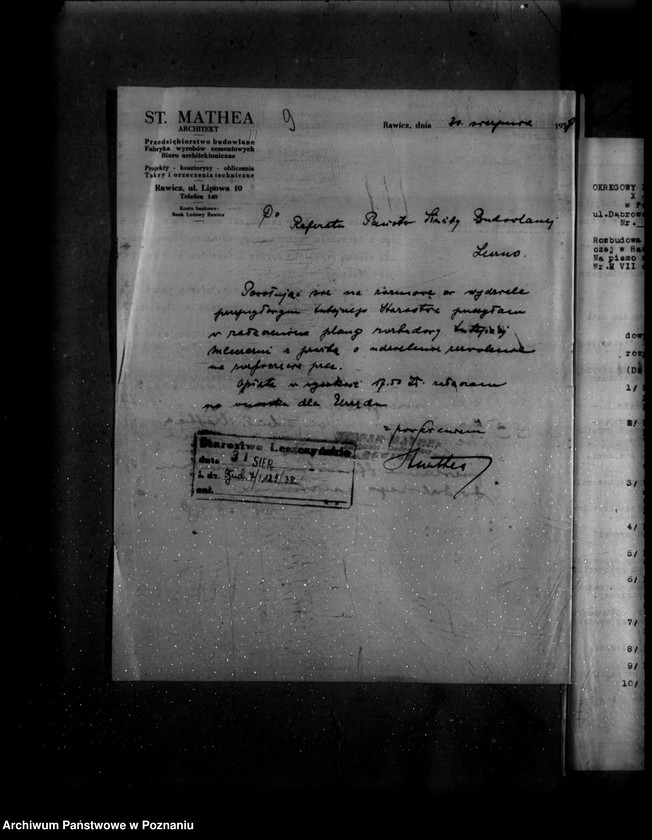 ST. MATHEA
ARCHITEKT
Przedsiębiorstwo budowlane
Fabryka wyrobów cementowych
Biuro architektoniczne
Projekty - kosztorysy - obliczenia
Taksy i orzeczenia techniczne
Rawicz, ul. Lipowa 10
Telefon 148
Konto bankowe:
Bank Ludowy Rawicz
9
Rawicz, dnia 30 sierpnia 1938
Do
Referatu Państw Służby Budowlanej
Leszno.
Powołując się na rozmowę w wydziale
tutejszego Starostwa przesyłam
w załączeniu plany rozbudowy tutejszej
mleczarni z prośbą o udzielenie zezwolenia
na rozpoczęcie prac.
Opłatę w wysokości 17.50 zł. załączam
na dla Urzędu
z poważaniem
SMathea
Starostwo Leszczyńskie
dnia 31 SIER
l. dz.
zał.
OKRĘGOWY
X
w P
ul.Dąbrow
Nr.
Rozbudowa
czej w Ra
Na pismo
Nr.M VII
dow
roz
1/
2/
3/
4/
5/
6/
7/
8/
9/
10/
Archiwum Państwowe w Poznaniu